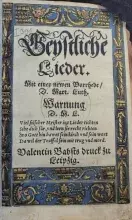 Geystliche
Lieder.
Mit einer newen Vorrhede/
D. Mart. Luth.
Warnung
D. M. L.
Viel falscher Meister itzt Lieder tichten
Sihe dich für/ und lern sie recht richten
Wo Gott hin bawet sein kirch und sein wort
Da wil der Teuffel sein mit trug und mord.
Valentin Babsts druck zu
Leipzig.